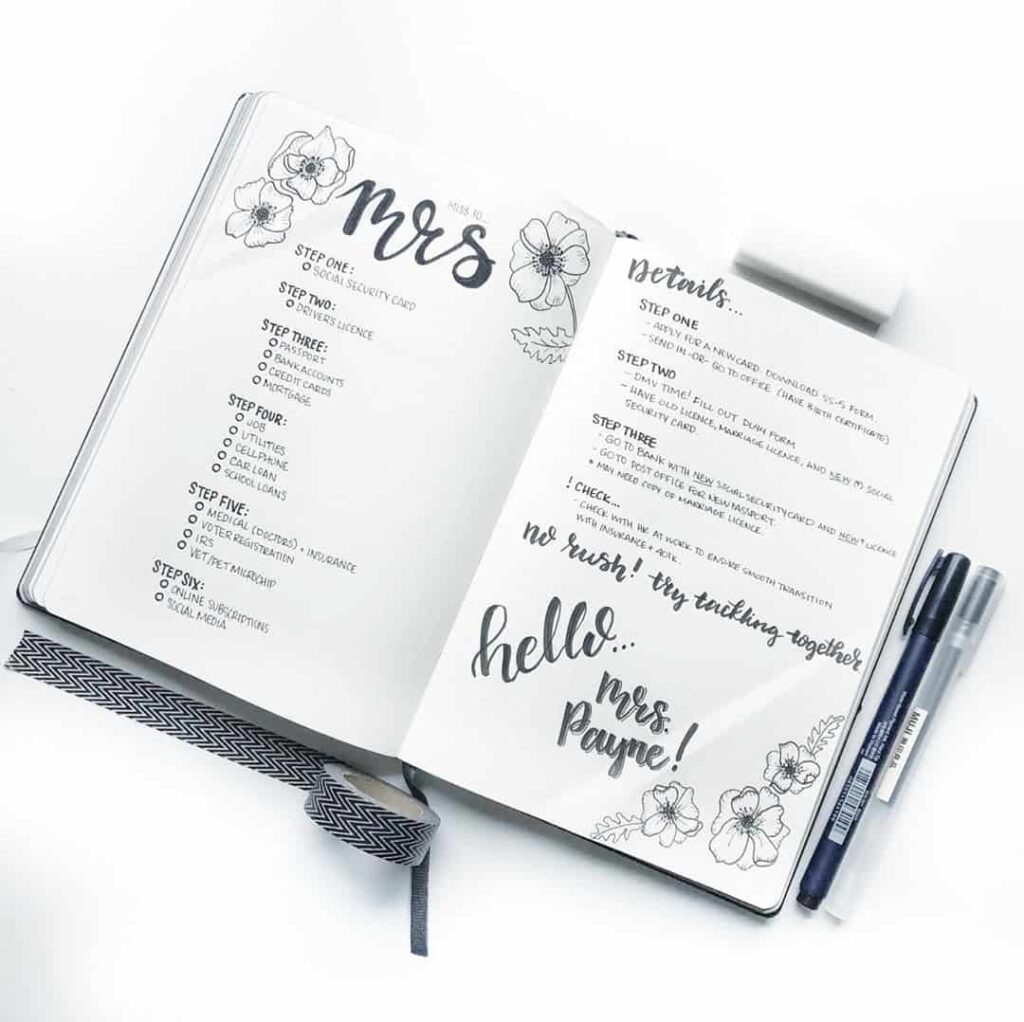 MISS TO...
mrs
STEP ONE:
SOCIAL SECURITY CARD
STEP TWO:
DRIVER'S LICENCE
STEP THREE:
PASSPORT
BANK ACCOUNTS
CREDIT CARDS
MORTGAGE
STEP FOUR:
JOB
UTILITIES
CELLPHONE
CAR LOAN
SCHOOL LOANS
STEP FIVE:
MEDICAL (DOCTORS) + INSURANCE
VOTER REGISTRATION
IRS
VET/PET MICROCHIP
STEP SIX:
ONLINE SUBSCRIPTIONS
SOCIAL MEDIA
Details...
STEP ONE
- APPLY FOR A NEW CARD. DOWNLOAD SS-5 FORM
- SEND IN -OR- GO TO OFFICE (HAVE BIRTH CERTIFICATE)
STEP TWO
- DMV TIME! FILL OUT FORM
- HAVE OLD LICENCE, MARRIAGE LICENCE, AND NEW SOCIAL
SECURITY CARD
STEP THREE
- GO TO BANK WITH NEW SOCIAL SECURITY CARD AND NEW LICENCE
- GO TO POST OFFICE FOR NEW PASSPORT.
* MAY NEED COPY OF MARRIAGE LICENCE.
! CHECK...
- CHECK WITH HR AT WORK TO ENSURE SMOOTH TRANSITION
WITH INSURANCE + 401K.
no rush! try tackling together
hello...
mrs.
Payne!
MUJI